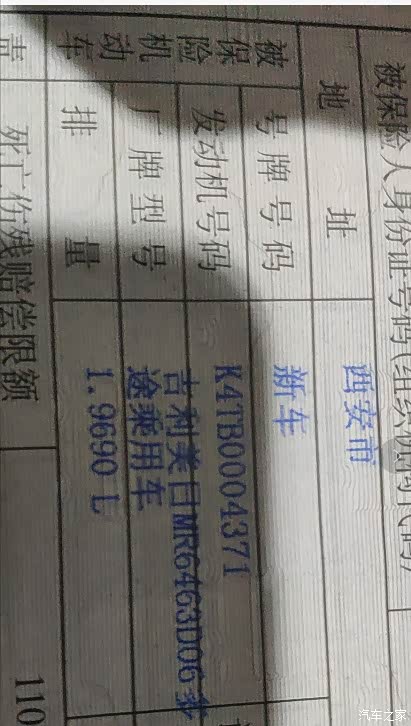 被保险人身份证号码(组织机构代码)
地 址 西安市
被保险机动车
号牌号码 新车
发动机号码 K4TB0004371
厂牌型号 吉利美日MR6463D06多
途乘用车
排 量 1.9690 L
责
死亡伤残赔偿限额 110
汽车之家